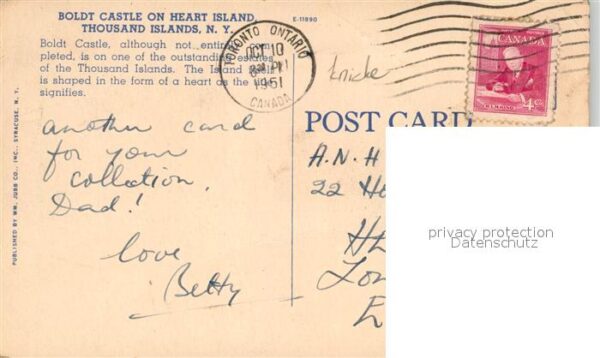 BOLDT CASTLE ON HEART ISLAND,
THOUSAND ISLANDS, N. Y.
E-11890
Boldt Castle, although not entirely com-
pleted, is on one of the outstanding estates
of the Thousand Islands. The Island itself
is shaped in the form of a heart as the name
signifies.
TORONTO ONTARIO
OCT 10
PM
1951
CANADA
knicke
CANADA
4c
POST CARD
another card
for your
collection,
Dad!
love
Betty
A.N.H
22
Lon
E
PUBLISHED BY WM. JUBB CO., INC., SYRACUSE, N. Y.
privacy protection
Datenschutz